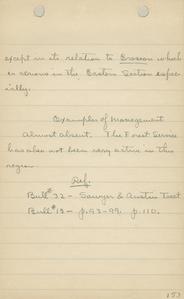 except in its relation to Erosion which
is serious in the Eastern Section espec-
ially.
Examples of Management
Almost absent. The Forest Service
has also not been very active in this
region.
Ref.
Bull # 32 - Sawyer & Austin Tract
Bull # 13 - p. 93-99. p. 110.